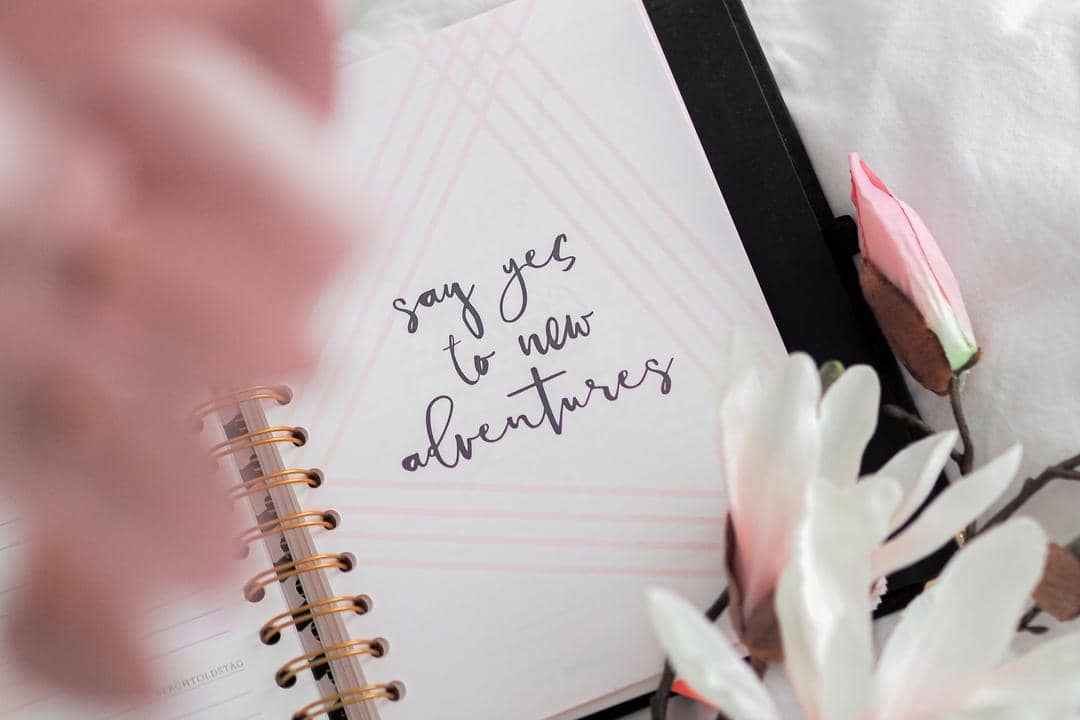 say yes
to new
adventures
BERCHTOLDSTAG